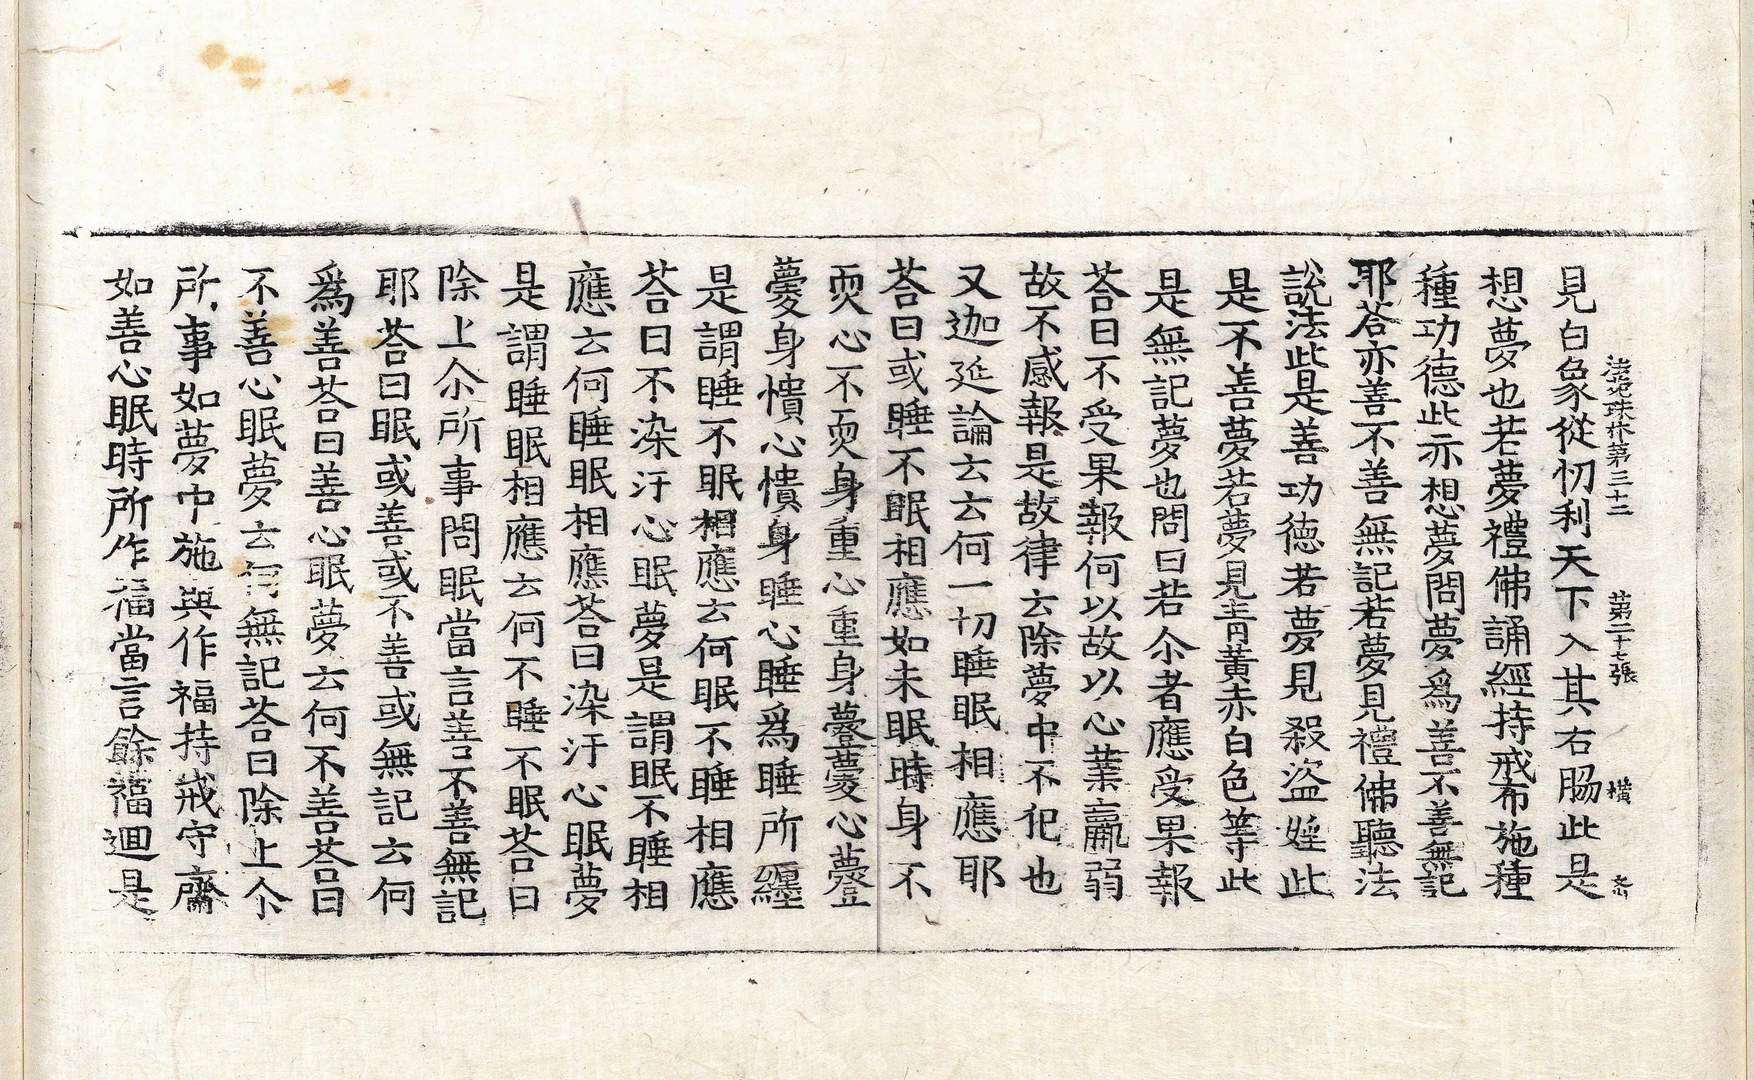 法苑珠林第三十二 第二十七張 橫
見白象從忉利天下入其右脇此是
想夢也若夢禮佛誦經持戒布施種
種功德此亦想夢問夢爲善不善無記
耶荅亦善不善無記若夢見禮佛聽法
說法此是善功德若夢見殺盜婬此
是不善夢若夢見青黃赤白色等此
是無記夢也問曰若尒者應受果報
荅曰不受果報何以故以心業羸弱
故不感報是故律云除夢中不犯也
又迦延論云云何一切睡眠相應耶
荅曰或睡不眠相應如未眠時身不
耎心不耎身重心重身薹夢心薹
夢身憒心憒身睡心睡爲睡所纏
是謂睡不眠相應云何眠不睡相應
荅曰不染汙心眠夢是謂眠不睡相
應云何睡眠相應荅曰染汙心眠夢
是謂睡眠相應云何不睡不眠荅曰
除上尒所事問眠當言善不善無記
耶荅曰眠或善或不善或無記云何
爲善荅曰善心眠夢云何不善荅曰
不善心眠夢云何無記荅曰除上尒
所事如夢中施與作福持戒守齋
如善心眠時所作福當言餘福迴是